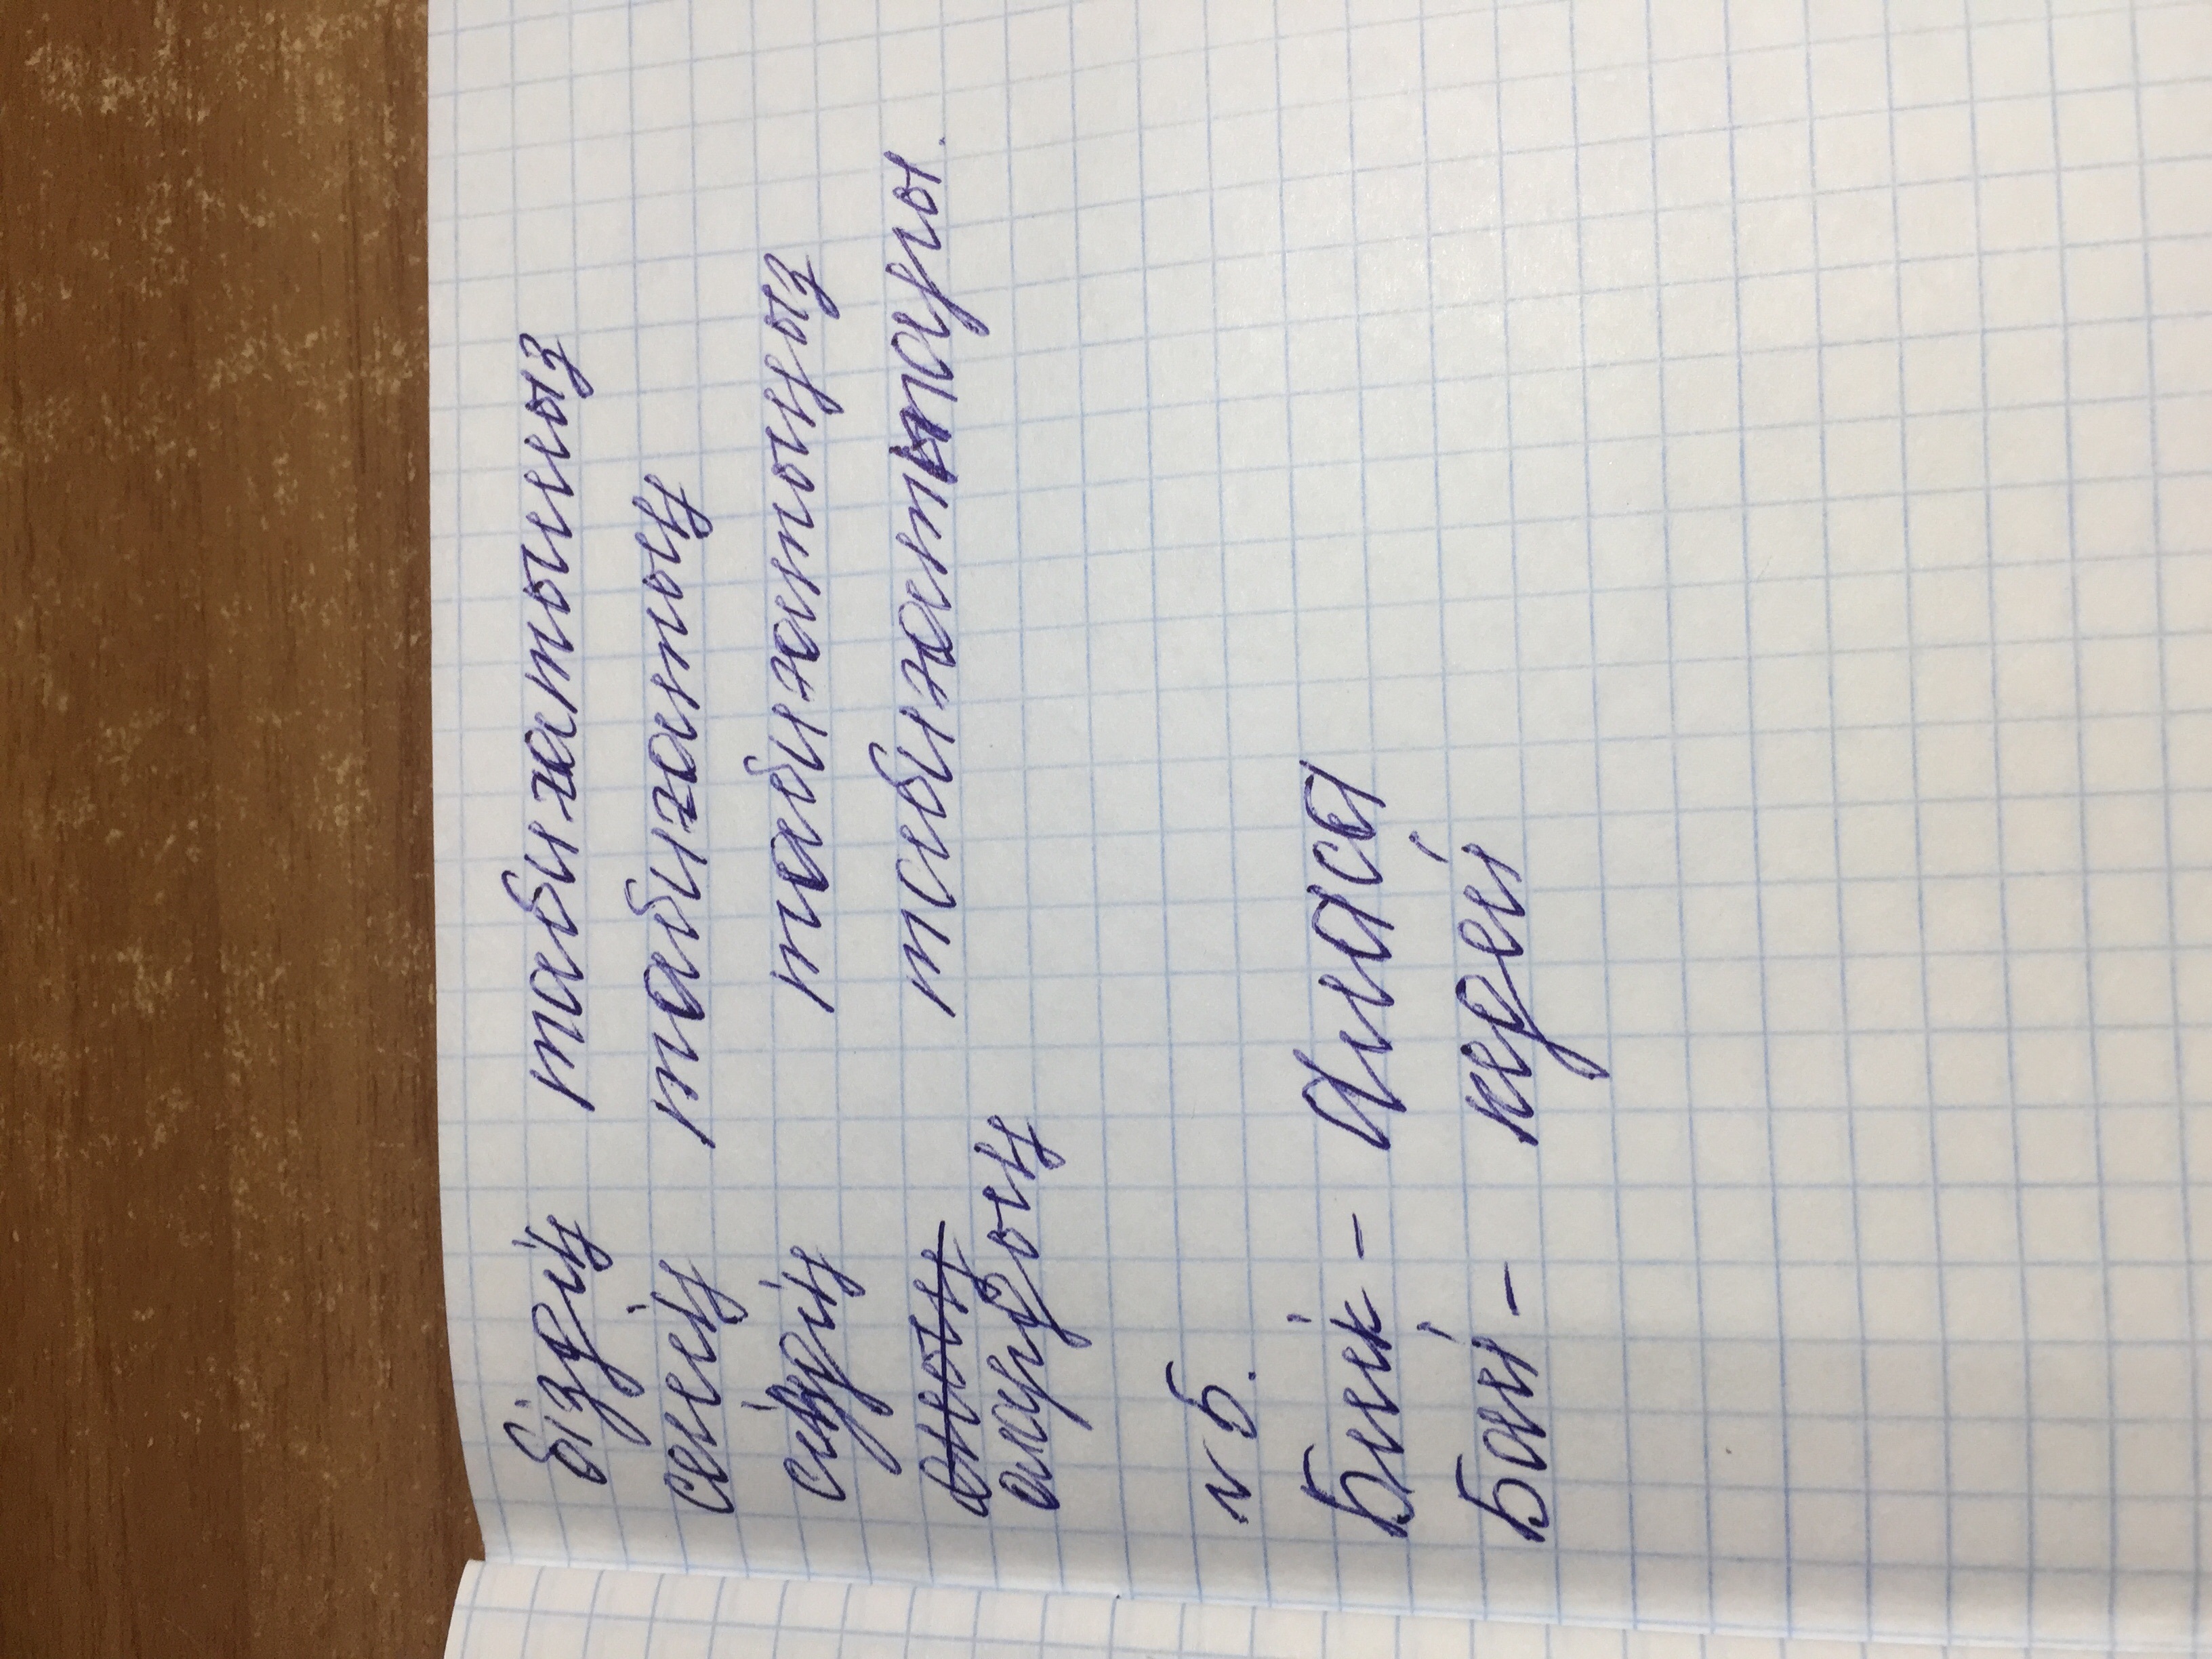 біздің табиғатымыз
сенің табиғатың
сіздің табиғатыңыз
олардың табиғаттары.
№5.
Биік - аласа
Бай - кедей